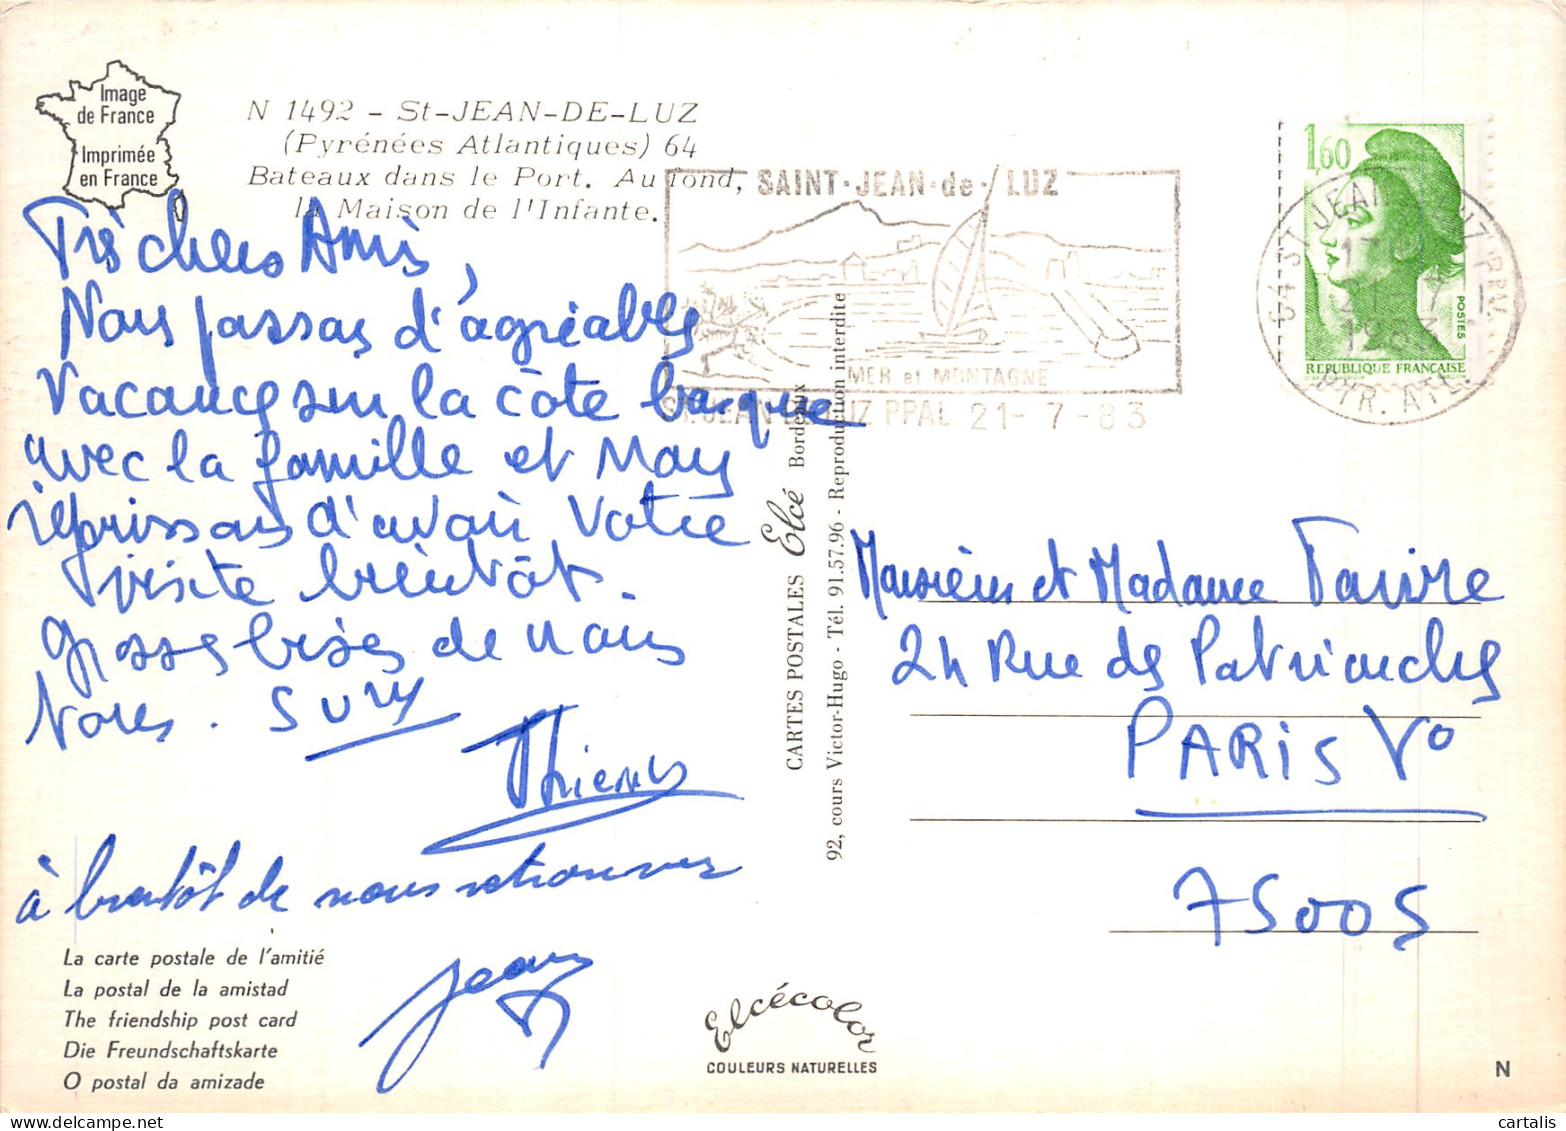 Image
de France
Imprimée
en France
N 1492 - St-JEAN-DE-LUZ
(Pyrénées Atlantiques) 64
Bateaux dans le Port. Au fond,
la Maison de l'Infante.
SAINT-JEAN-de-LUZ
MER et MONTAGNE
ST. JEAN DE LUZ PPAL 21-7-83
1,60
POSTES
REPUBLIQUE FRANÇAISE
64 ST JEAN DE LUZ PPAL
21-7
1983
PYR. ATL.
Très chers Amis,
Nous passons d'agréables
Vacances sur la côte basque
avec la famille et Nous
réjouissons d'avoir Votre
visite bientôt.
Grosses bises de nous
Tous. Suzy
Thierry
à bientôt de nous retrouver
Jean
La carte postale de l'amitié
La postal de la amistad
The friendship post card
Die Freundschaftskarte
O postal da amizade
CARTES POSTALES Elcé Bordeaux
92, cours Victor-Hugo - Tél. 91.57.96 - Reproduction interdite
Elcécolor
COULEURS NATURELLES
et Madame Faivre
24 Rue des Patriarches
PARIS V°
75005
N
cartalis